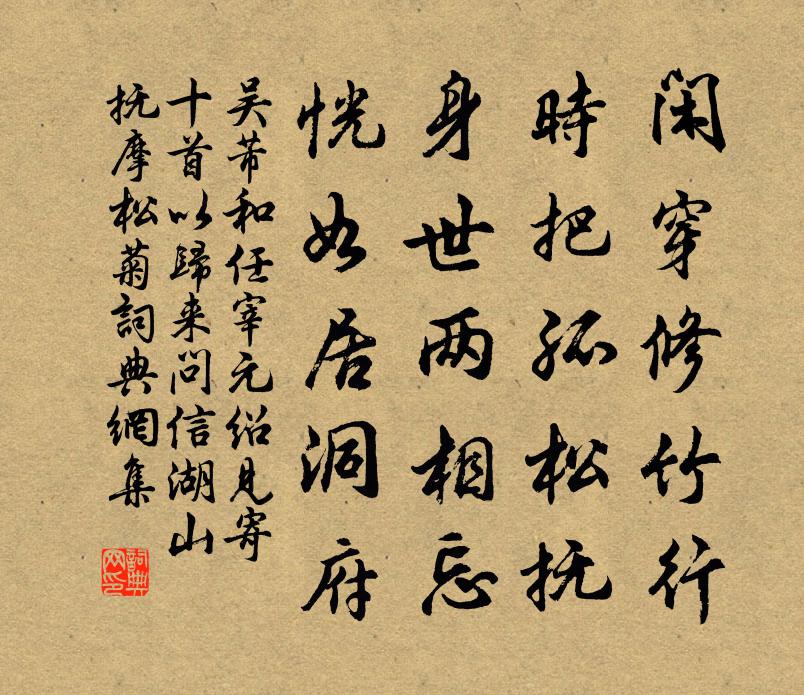 闲穿修竹行
時把孤松抚
身世两相忘
恍如居洞府
吴芾和任宰元绍見寄
十首以歸来問信湖山
抚摩松菊詞典網集
詞典網印